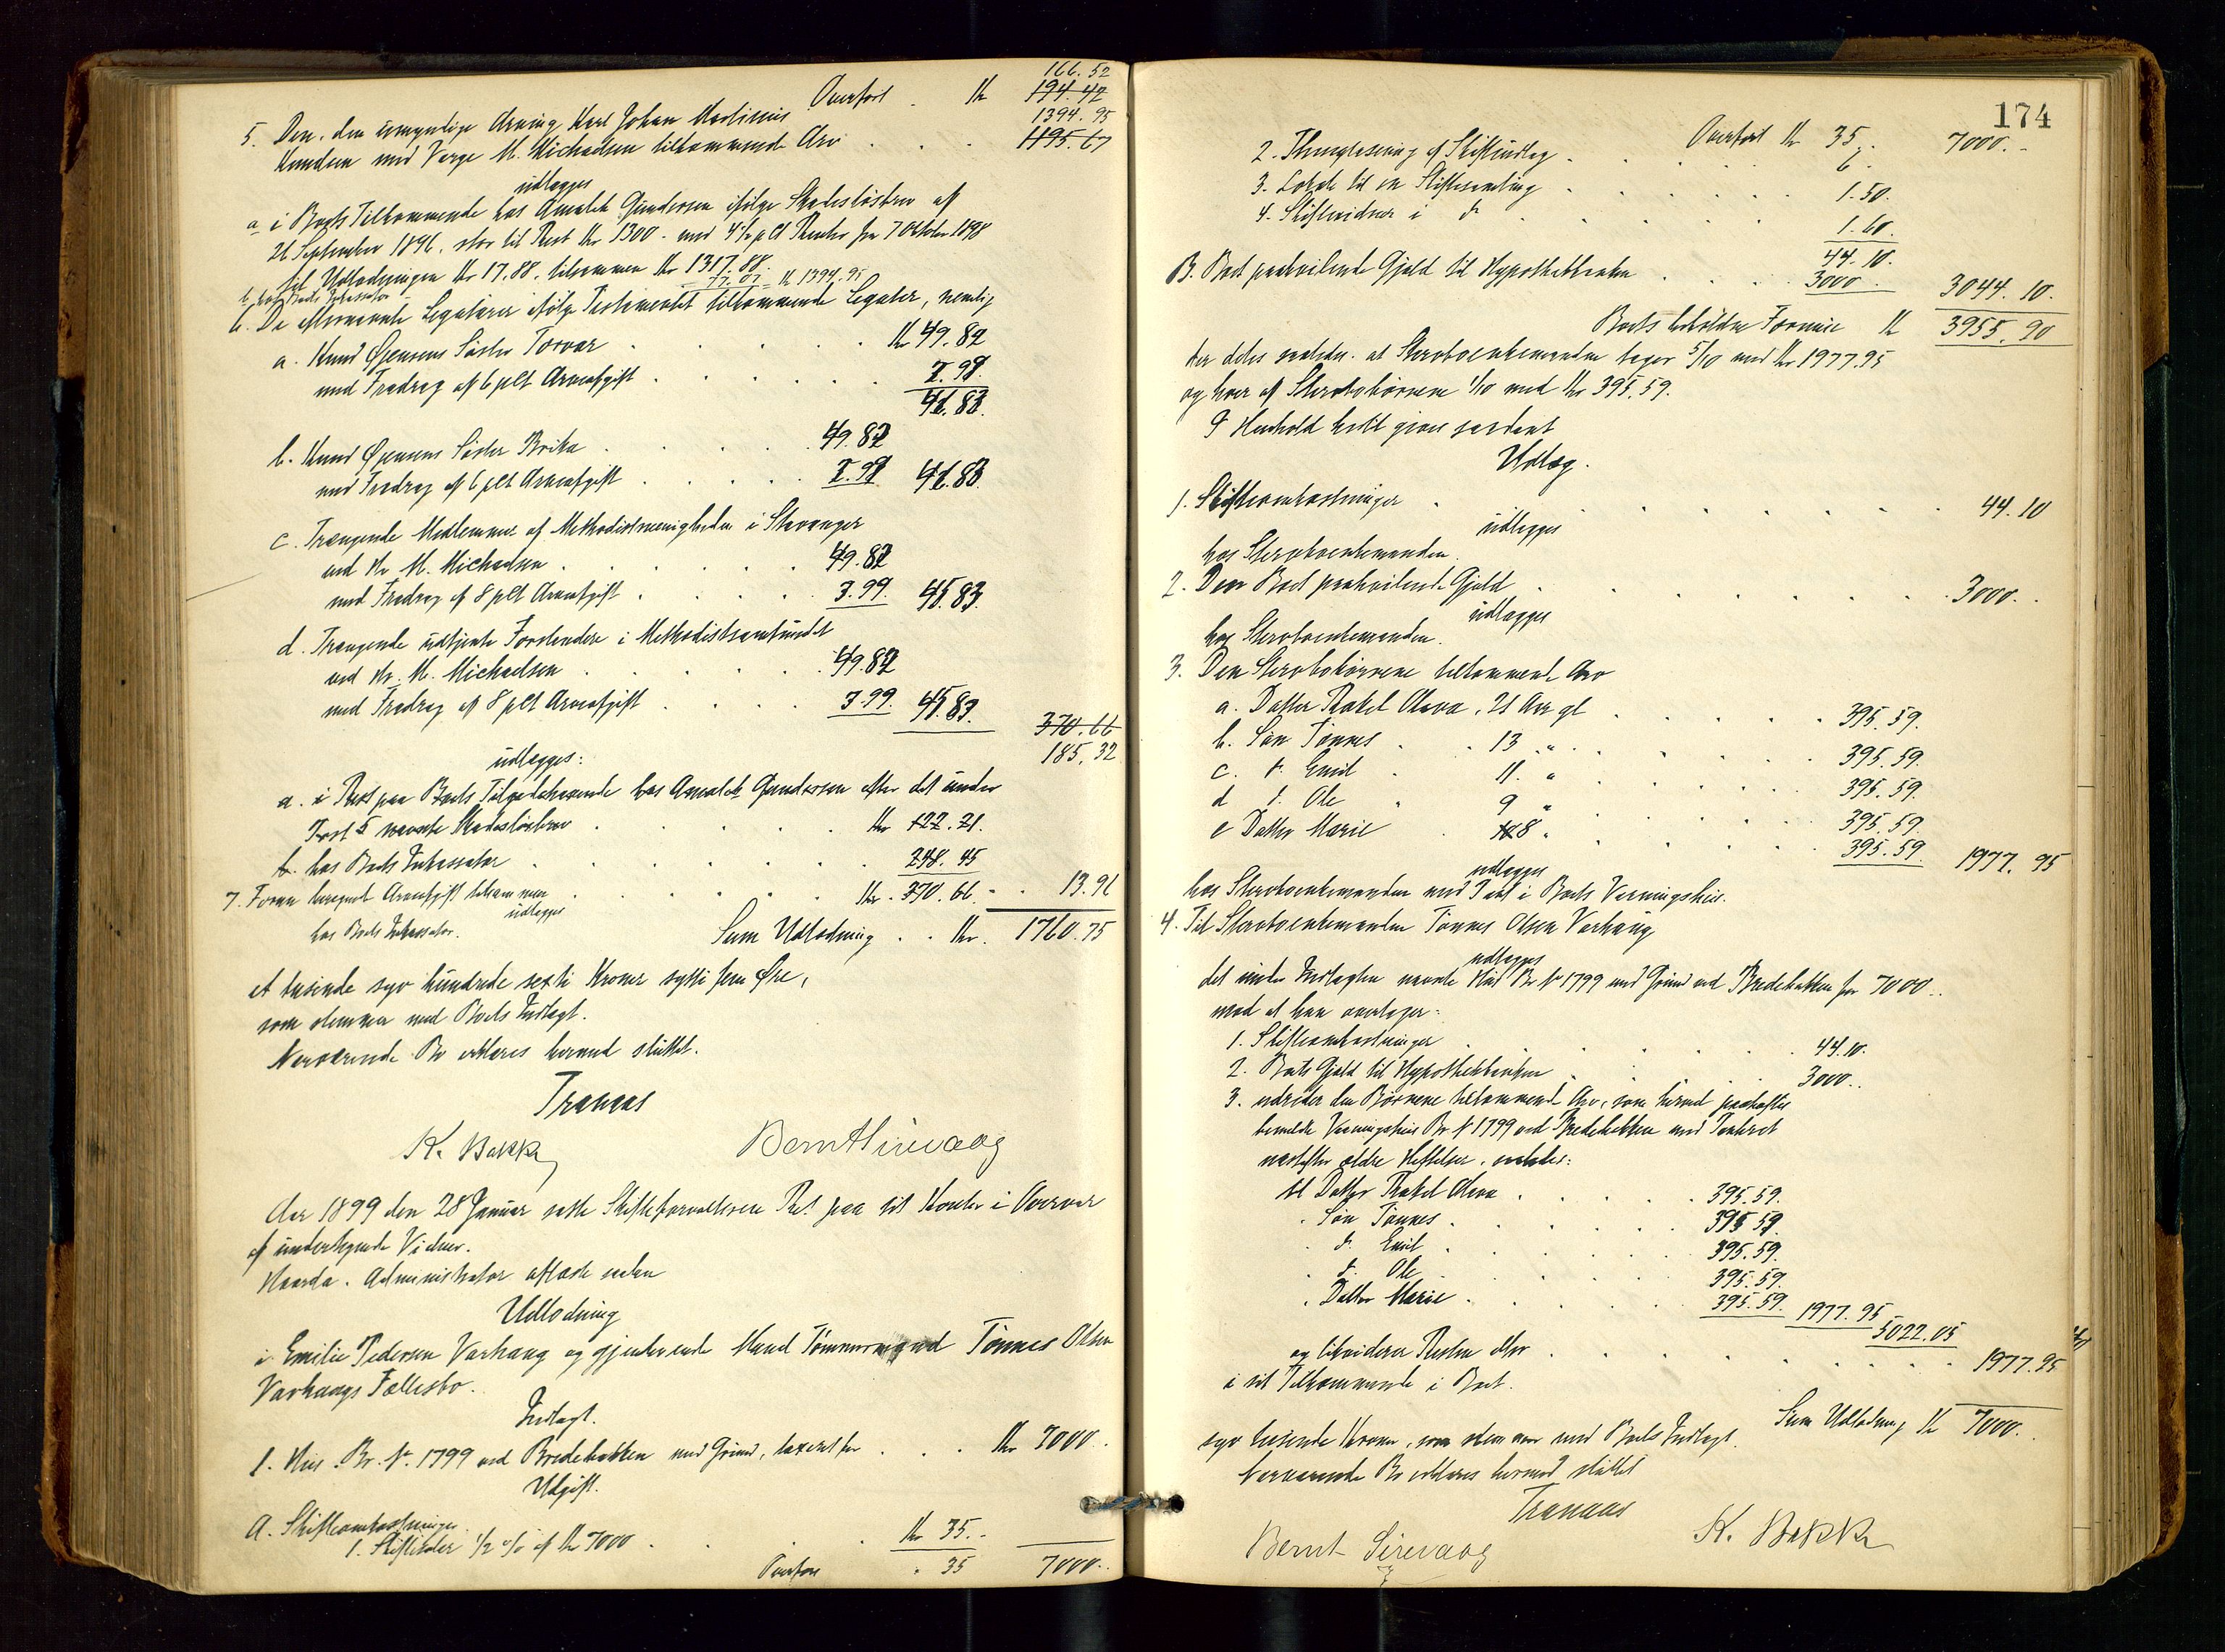 Overført . Kr 166.52
194.42
5. Den, den umyndige Arving Karl Johan Martinius 1394.95
Knudsen med Verge M. Michaelsen tilkommende Arv . . . 1195.67
udlægges
a i Boets Tilkommende hos Amalek Gundersen ifølge Skadesløsbrev af
26 September 1896, stor til Rest Kr 1300 - med 4½ pCt Renter fra 7 Oktober 1898
til Udlodningen Kr 17.88, tilsammen Kr 1317.88.
b. hos Boets Inkassator 77.07 = Kr 1394.95
6. De efternævnte Legatarer ifølge Testamentet tilkommende Legater, nemlig
a. Knud Øjensens Søster Torvor . . . Kr 49.82
med Fradrag af 6 pCt Arveafgift . . . 2.99
46.83
b. Knud Øjensens Søster Brita . . . 49.82
med Fradrag af 6 pCt Arveafgift . . . 2.99 46.83
c. Trængende Medlemmer af Methodistmenigheden i Stavanger
ved Hr M. Michaelsen . . . 49.82
med Fradrag af 8 pCt Arveafgift . . . 3.99 45.83
d. Trængende udtjente Forstandere i Methodistsamfundet
ved Hr. M. Michaelsen . . . 49.82
med Fradrag af 8 pCt Arveafgift . . . 3.99 45.83. 370.66
185.32
udlægges:
a. i Rest paa Boets Tilgodehavende hos Amalek Gundersen efter det under
Post 5 nævnte Skadesløsbrev . . . Kr 122.21.
b. hos Boets Inkassator . . . 248.45
Kr. 370.66
7. Foran beregnet Arveafgift tilsammen . . . 13.96
udlægges
hos Boets Inkassator.
Sum Udlodning . . Kr. 1760.75
et tusinde syv hundrede sexti Kroner sytti fem Øre,
som stemmer med Boets Indtægt.
Nærværende Bo erklæres hermed sluttet.
Tranaas
K. Bakke Bernt Sirevaag
Aar 1899 den 28 Januar satte Skifteforvalteren Ret paa sit Kontor i Overvær
af undertegnede Vidner.
Haarda. Administrator aflagde saadan
Udlodning
i Emilie Pedersen Varhaug og gjenlevende Mand Tømmermand Tønnes Olsen
Varhaugs Fællesbo.
Indtægt.
1. Hus Br. Nr. 1799 ved Bredebakken med Grund, taxeret for . . . Kr 7000..
Udgift.
A. Skifteomkostninger.
1. Skiftesaler ½ % af Kr 7000 . . . Kr 35..
Overføres . 35 7000..
174
Overført Kr 35.. 7000..
2. Thinglæsning af Skifteudlæg . . . 6.
3. Lokale til en Skiftesamling . . . 1.50.
4. Skiftevidner i do . . . 1.60.
44.10.
B. Boet paahvilende Gjæld til Hypothekbanken . . . 3000. 3044.10.
Boets beholdne Formue Kr 3955.90
der deles saaledes, at Stervboenkemanden tager 5/10 med Kr 1977.95
og hver af Stervbobørnene 1/10 med Kr 395.59.
I Henhold hertil gives saadant
Udlæg.
1. Skifteomkostninger . . . 44.10
udlægges
hos Stervboenkemanden.
2. Den Boet paahvilende Gjæld . . . 3000..
udlægges
hos Stervboenkemanden.
3. Den Stervbobørnene tilkommende Arv
a. Datter Rakel Olava, 21 Aar gl . . . 395.59.
b. Søn Tønnes . . 13 " . . . 395.59.
c. do Emil . . 11. " . . . 395.59.
d do Ole . 9 " . . . 395.59.
e Datter Marie . 8 " . . . 395.59. 1977.95
udlægges
hos Stervboenkemanden med Pant i Boets Vaaningshus.
4. Til Stervboenkemanden Tønnes Olsen Varhaug
udlægges
det under Indtægten nævnte Hus Br Nr 1799 med Grund ved Bredebakken for 7000..
mod at han overtager:
1. Skifteomkostninger . . . 44.10.
2. Boets Gjæld til Hypothekbanken . . . 3000..
3. udreder den Børnene tilkommende Arv, som hermed paahæftes
bemeldte Vaaningshus Br Nr 1799 ved Bredebakken med Panteret
næstefter ældre Heftelser, saaledes:
til Datter Rakel Olava . . . 395.59.
" Søn Tønnes . . . 395.59.
" do Emil . . . 395.59.
" do Ole . . . 395.59.
" Datter Marie . . . 395.59. 1977.95
5022.05
og likviderer Resten eller . . . 1977.95
i sit Tilkommende i Boet.
Sum Udlodning Kr 7000..
syv tusende Kroner, som stemmer med Boets Indtægt.
Nærværende Bo erklæres hermed sluttet
Tranaas
Bernt Sirevaag K. Bakke